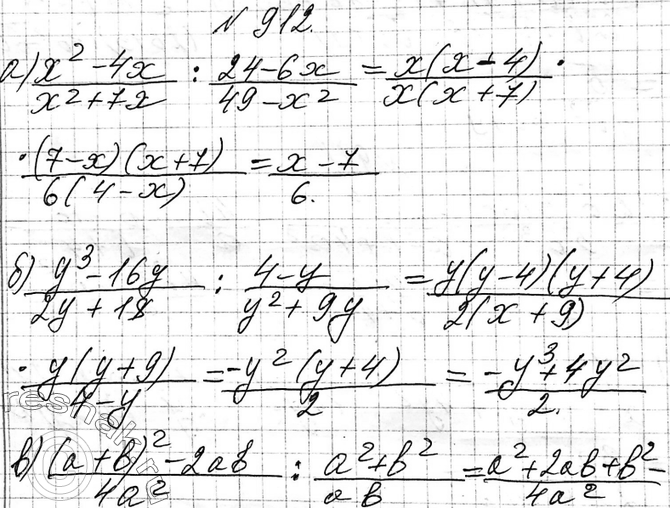 № 912.
а) (x² - 4x)/(x² + 7x) : (24 - 6x)/(49 - x²) = x(x - 4)/x(x + 7) ·
· (7 - x)(x + 7)/6(4 - x) = (x - 7)/6.
б) (y³ - 16y)/(2y + 18) : (4 - y)/(y² + 9y) = y(y - 4)(y + 4)/2(x + 9)
· y(y + 9)/(4 - y) = -y²(y + 4)/2 = (-y³ + 4y²)/2.
в) ((a + b)² - 2ab)/4a² : (a² + b²)/ab = (a² + 2ab + b² -)/4a²